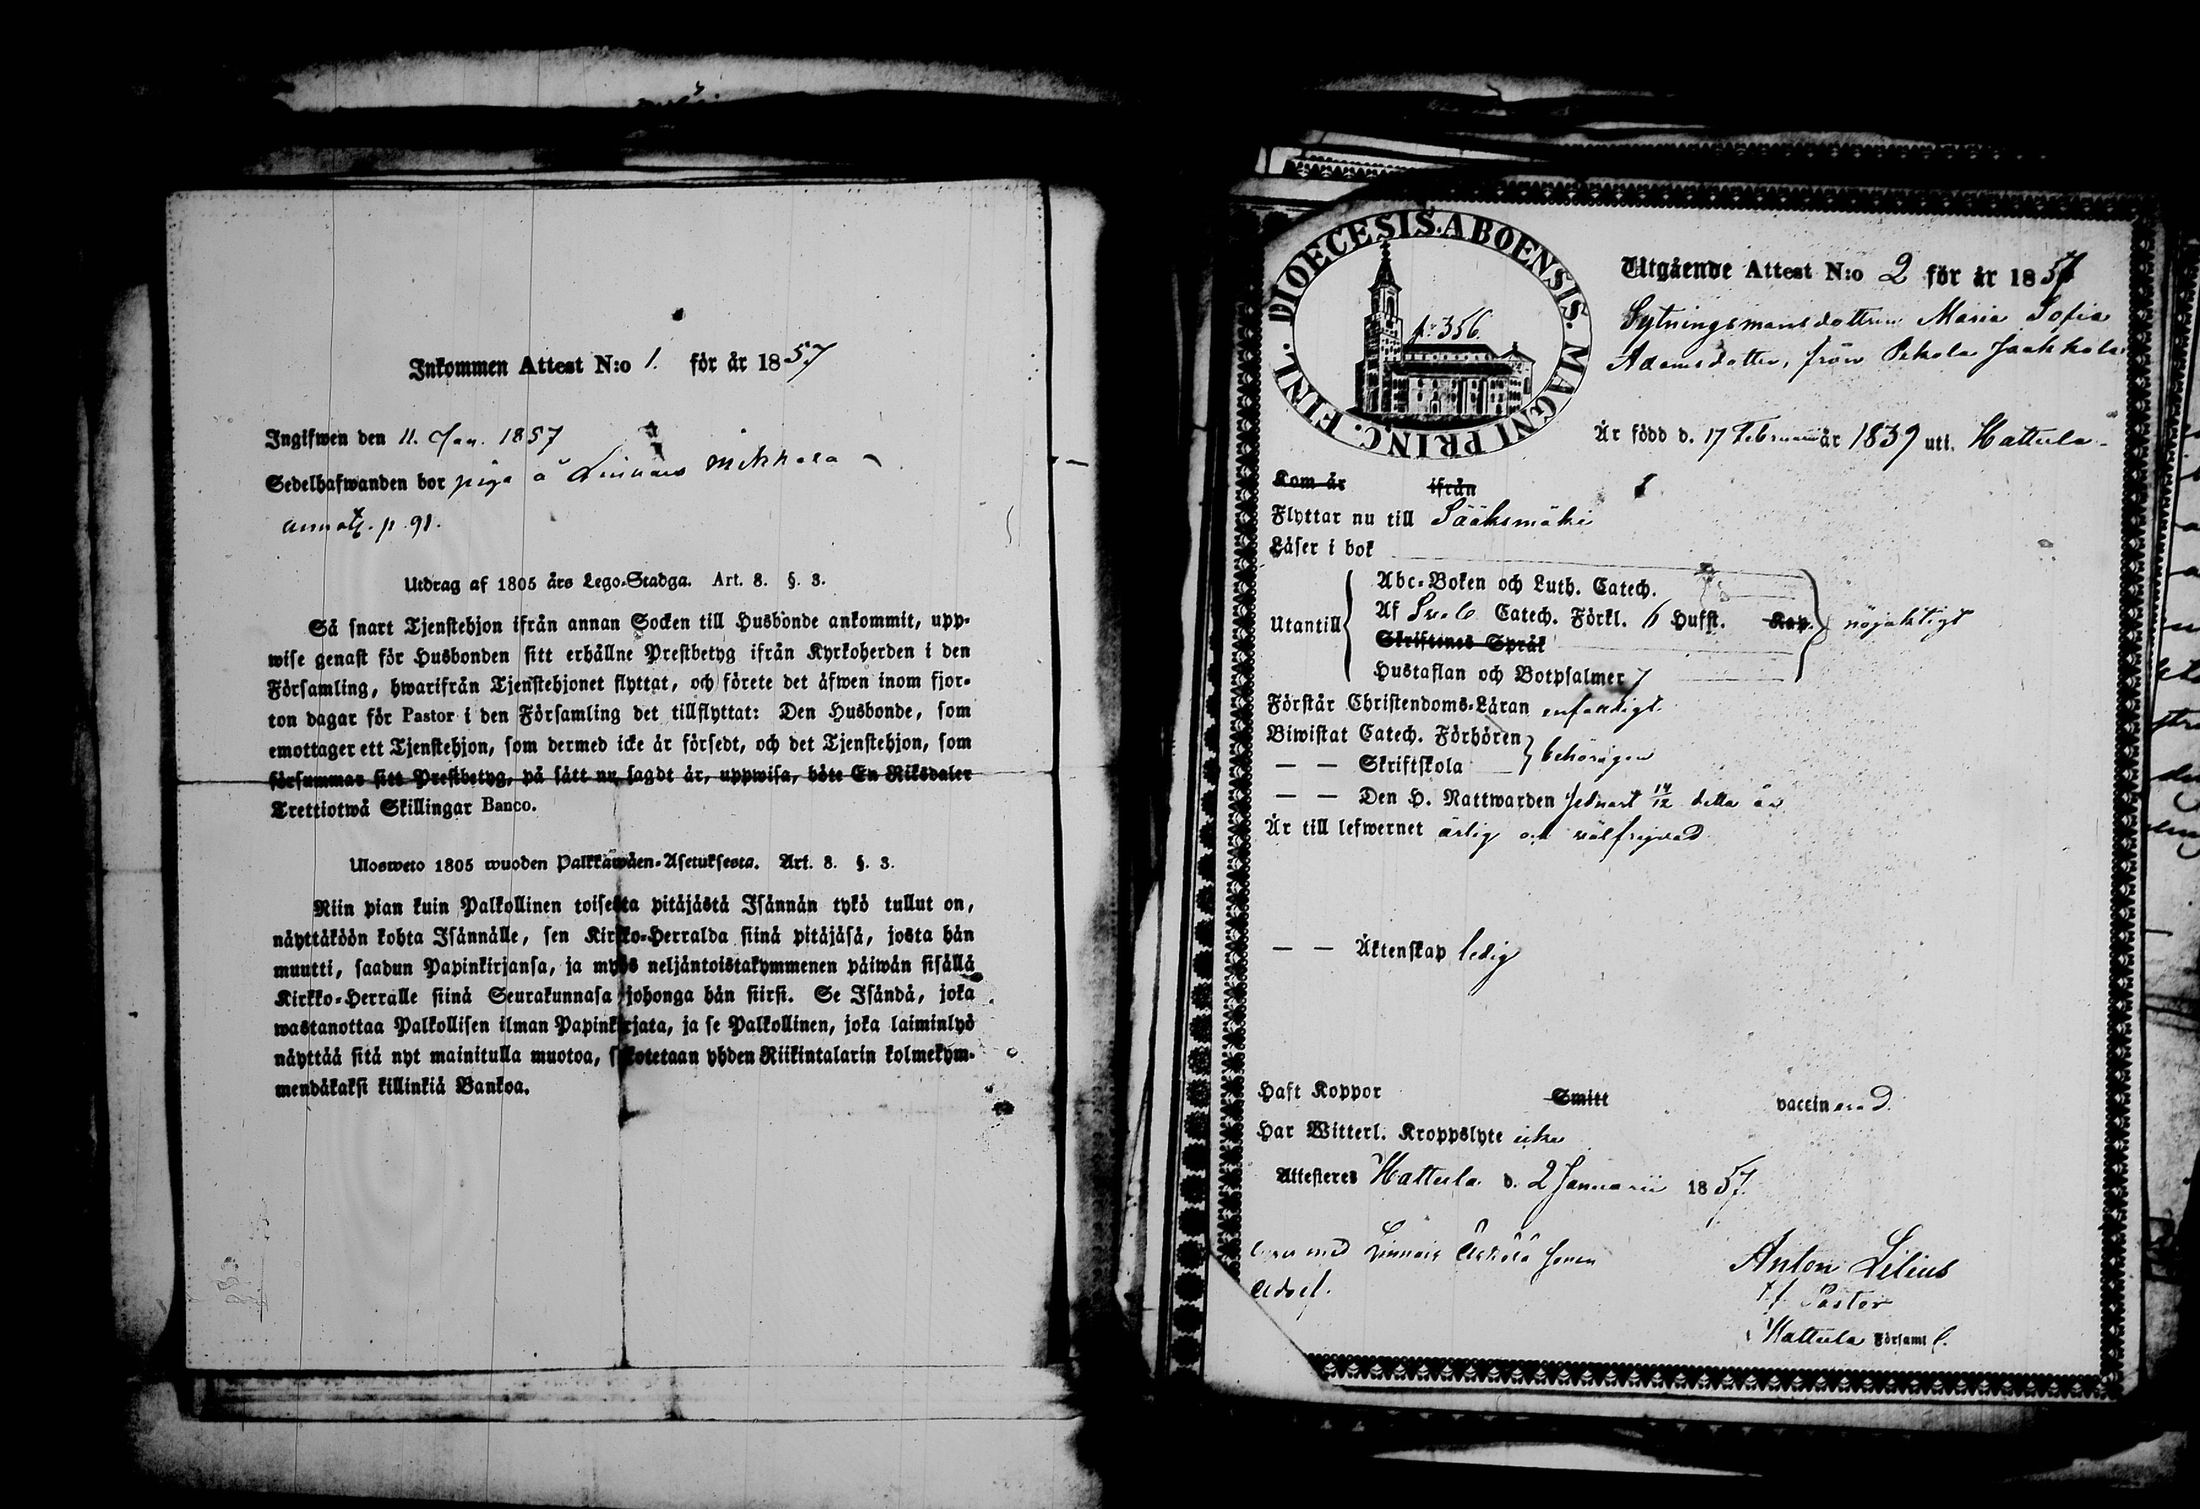 Inkommen Attest N:o 1. för år 1857
Ingifwen den 11. Jan. 1857
Sedelhafwanden bor piga å Linnais Mikkola
annot. p. 91.
Utdrag af 1805 års Lego-Stadga. Art. 8. §. 3.
Så snart Tjenstehjon ifrån annan Socken till Husbonde ankommit, upp-
wise genast för Husbonden sitt erhållne Prestbetyg ifrån Kyrkoherden i den
Församling, hwarifrån Tjenstehjonet flyttat, och förete det äfwen inom fjor-
ton dagar för Pastor i den Församling det tillflyttat: Den Husbonde, som
emottager ett Tjenstehjon, som dermed icke är försedt, och det Tjenstehjon, som
försummar sitt Prestbetyg, på sätt nu sagdt är, uppwisa, böte En Riksdaler
Trettiotwå Skillingar Banco.
Ulosweto 1805 wuoden Palkkawäen-Asetuksesta. Art. 8. §. 3.
Niin pian kuin Palkollinen toisesta pitäjästä Isännän tykö tullut on,
näyttäköön kohta Isännälle, sen Kirkko-Herralda siinä pitäjäsä, josta hän
muutti, saadun Papinkirjansa, ja myös neljäntoistakymmenen päiwän sisällä
Kirkko-Herralle siinä Seurakunnasa johonga hän siirsi. Se Isändä, joka
wastanottaa Palkollisen ilman Papinkirjata, ja se Palkollinen, joka laiminlyö
näyttää sitä nyt mainitulla muotoa, sakotetaan yhden Riikintalarin kolmekym-
mendäkaksi killinkiä Bankoa.
DIOECESIS. ABOENSIS. MAGNI PRINC. FINL.
p. 356.
Utgående Attest N:o 2 för år 1857
Sytningsmansdottren Maria Sofia
Adamsdotter, från Pekola Jaakkola
Är född d. 17 Februarii år 1839 uti Hattula
Kom år ifrån
Flyttar nu till Sääksmäki
Läser i bok
Abc-Boken och Luth. Catech.
Utantill Af Sveb Catech. Förkl. 6 Hufst. Kap. nöjaktigt
Skriftenes Språk
Hustaflan och Botpsalmer 7
Förstår Christendoms-Läran enfaldigt
Biwistat Catech. Förhören
— — Skriftskola behörigen
— — Den H. Nattwarden sednast 14/12 detta år
Är till lefwernet ärlig och välfrejdad
— — Äktenskap ledig
Haft Koppor Smitt vaccinerad.
Har Witterl. Kroppslyte icke
Attesteres Hattula d. 2 Januarii 1857.
med Linnais
Anton Lilius
t. f. Pastor
Hattula Församl.